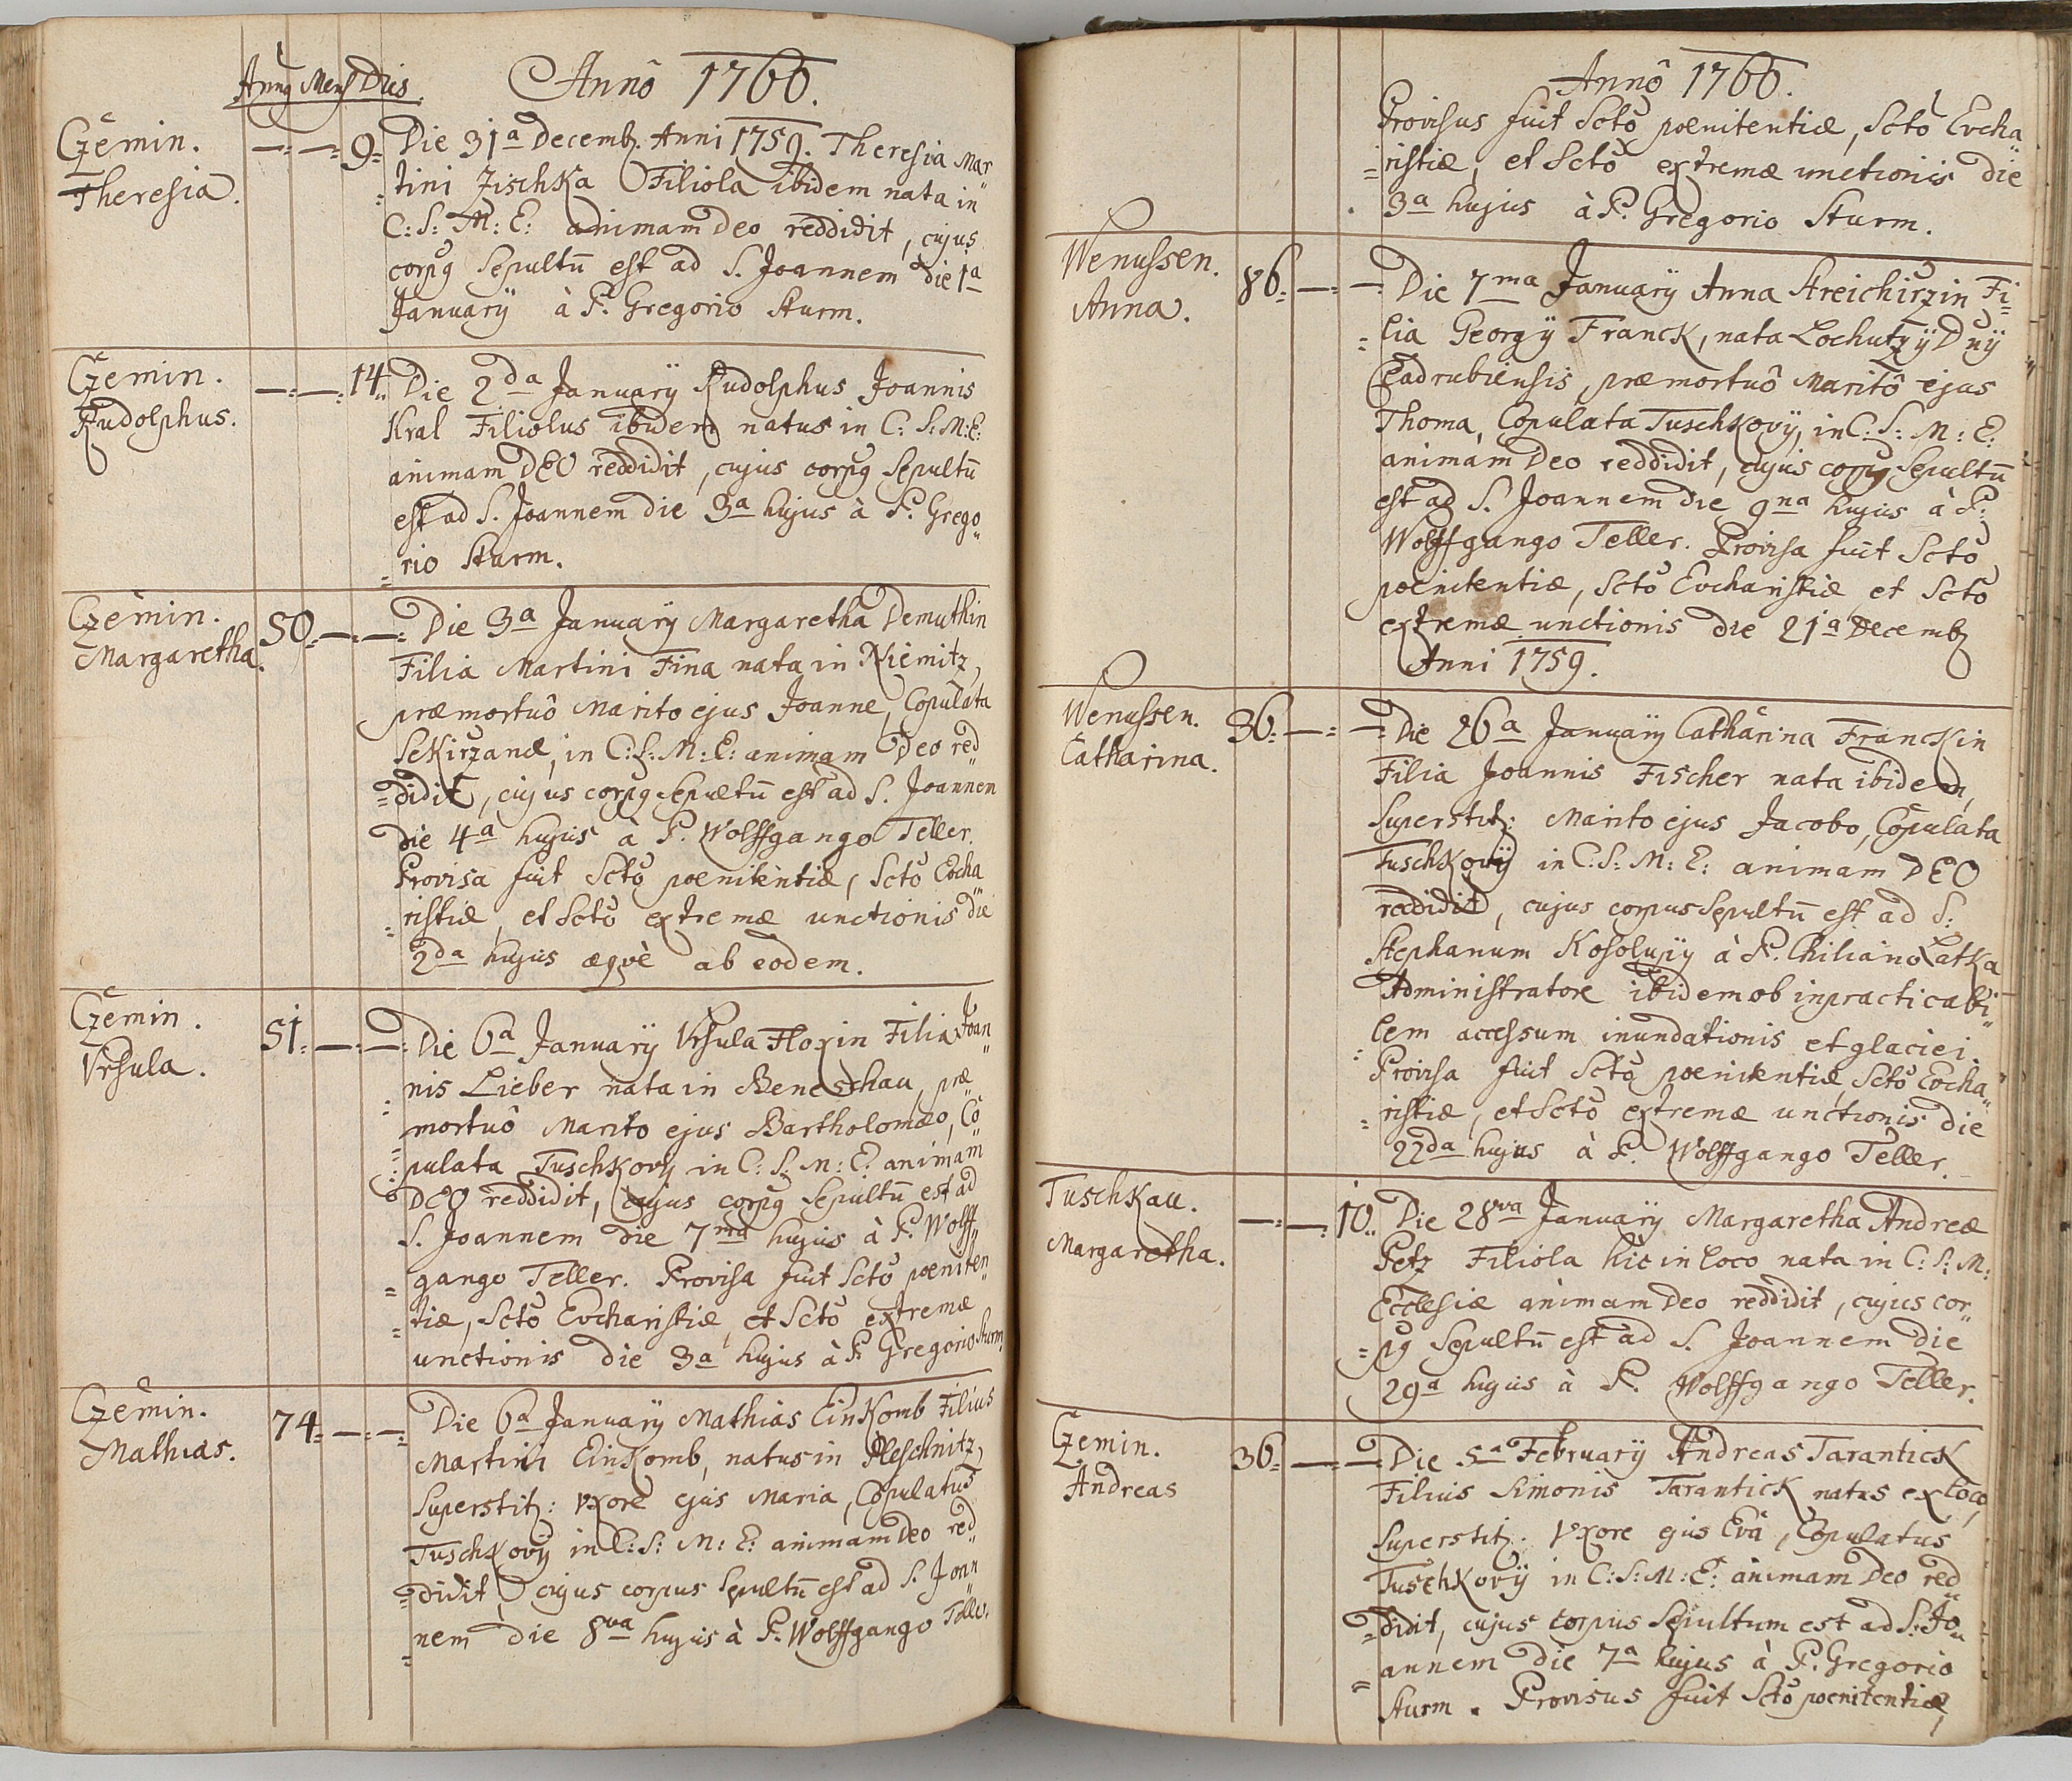 Annꝯ Mens Dies.
Annô 1760.
Czemin.
Theresia.
—:—:9.
Die 31a Decemb. Anni 1759. Theresia Mar„
tini Zischka Filiola ibidem nata in
C: S: M: E: animam Deo reddidit, cujus
corpꝯ Sepultū est ad S. Joannem die 1a
Januarÿ à P. Gregorio Sturm.
Czemin.
Rudolphus.
—:—:14.
Die 2da Januarÿ Rudolphus Joannis
Kral Filiolus ibidem natus in C: S: M: E:
animam DEO reddidit, cujus corpꝯ Sepultū
est ad S. Joannem die 3a hujus à P. Grego„
rio Sturm.
Czemin.
Margaretha.
50.—:—:
Die 3a Januarÿ Margaretha Demuthin
Filia Martini Fina nata in Niemitz,
præmortuô Marito ejus Joanne, Copulata
Sekirzanæ, in C: S: M: E: animam Deo red„
didit, cujus corpꝯ Sepultū est ad S. Joannem
die 4a hujus à P. Wolffgango Teller.
Provisa fuit Scto poenitentiæ, Scto Evcha„
ristiæ, et Scto extremæ unctionis die
2da hujus æqvè ab eodem.
Czemin.
Vrsula.
51.—:—:
Die 6a Januarÿ Vrsula Floxin Filia Joan„
nis Lieber nata in Beneschau, præ„
mortuô Marito ejus Bartholomæo, Co„
pulata Tuschkovÿ in C: S: M: E: animam
DEO reddidit, cujus corpꝯ Sepultū est ad
S. Joannem die 7ma hujus à P. Wolff„
gango Teller. Provisa fuit Scto poeniten„
tiæ, Scto Evcharistiæ, et Scto extremæ
unctionis die 3a hujus à P. Gregorio Sturm.
Czemin.
Mathias.
74.—:—:
Die 6a Januarÿ Mathias Einkomb Filius
Martini Einkomb, natus in Pleschnitz,
Superstit: Vxore ejus Maria, Copulatus
Tuschkovÿ in C: S: M: E: animam Deo red„
didit, cujus corpus Sepultū est ad S. Joan„
nem die 8va hujus à P. Wolffgango Teller.
Annô 1760.
Provisus fuit Scto poenitentiæ, Scto Evcha„
ristiæ, et Scto extremæ unctionis die
3a hujus à P. Gregorio Sturm.
Wenussen.
Anna.
86.—:—:
Die 7ma Januarÿ Anna Streichirzin Fi„
lia Georgÿ Franck, nata Lochutzÿ Dnÿ
Cladrubiensis, præmortuô Maritô ejus
Thoma, Copulata Tuschkovÿ, in C: S: M: E:
animam Deo reddidit, cujus corpꝯ Sepultū
est ad S. Joannem die 9na hujus à P.
Wolffgango Teller. Provisa fuit Scto
poenitentiæ, Scto Evcharistiæ, et Scto
extremæ unctionis die 21a Decemb.
Anni 1759.
Wenussen.
Catharina.
36.—:—:
Die 26a Januarÿ Catharina Franckin
Filia Joannis Fischer nata ibidem,
Superstit: Marito ejus Jacobo, Copulata
Tuschkovÿ in C: S: M: E: animam DEO
reddidit, cujus corpus Sepultū est ad S:
Stephanum Kosolupÿ à P. Chiliano Latka
Administratore ibidem ob inpracticabi„
lem accessum inundationis et glaciei.
Provisa fuit Scto poenitentiæ, Scto Evcha„
ristiæ, et Scto extremæ unctionis die
22da hujus à P. Wolffgango Teller.
Tuschkau.
Margaretha.
—:—:10.
Die 28va Januarÿ Margaretha Andreæ
Petz Filiola hic in loco nata in C: S: M:
Ecclesiæ animam Deo reddidit, cujus cor„
pꝯ Sepultū est ad S. Joannem die
29a hujus à P. Wolffgango Teller.
Czemin.
Andreas
36.—:—:
Die 5a Februarÿ Andreas Tarantick
Filius Simonis Tarantick natus ex loco,
Superstit. Vxore ejus Evâ, Copulatus
Tuschkovÿ in C: S: M: E: animam Deo red„
didit, cujus corpus Sepultum est ad S: Jo„
annem die 7a hujus à P. Gregorio
Sturm. Provisus fuit Scto poenitentiæ,